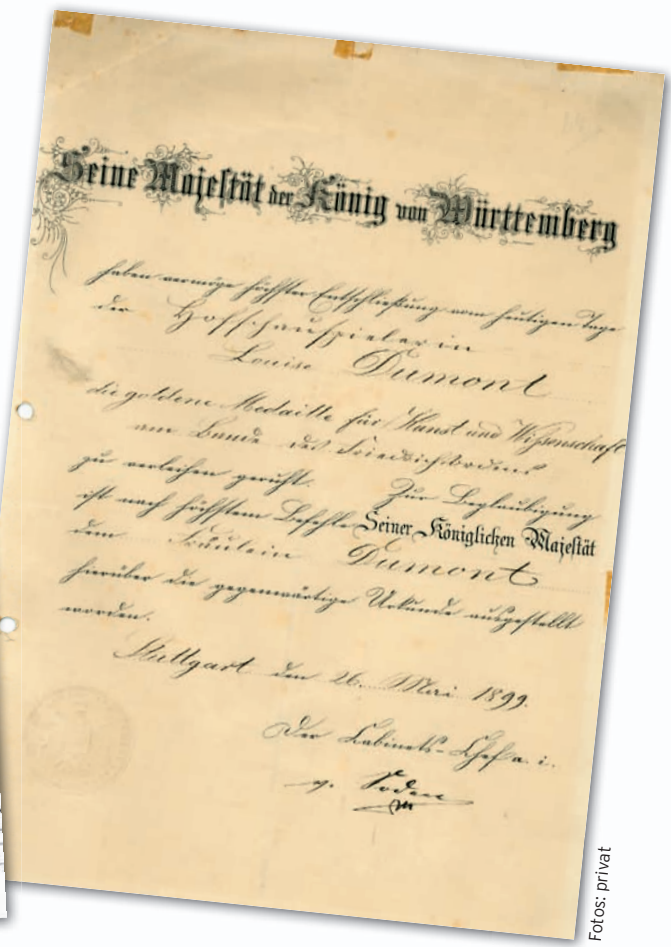 Seine Majestät der König von Württemberg
haben vermöge höchster Entschließung vom heutigen Tage
der Hofschauspielerin
Louise Dumont
die goldene Medaille für Kunst und Wissenschaft
am Bande des Friedrichsordens
zu verleihen geruht. Zur Beglaubigung
ist nach höchstem Befehle Seiner Königlichen Majestät
dem Fräulein Dumont
hierüber die gegenwärtige Urkunde ausgestellt
worden.
Stuttgart den 26. Mai 1899.
Der Cabinets-Chef a. i.
v. Soden
Fotos: privat